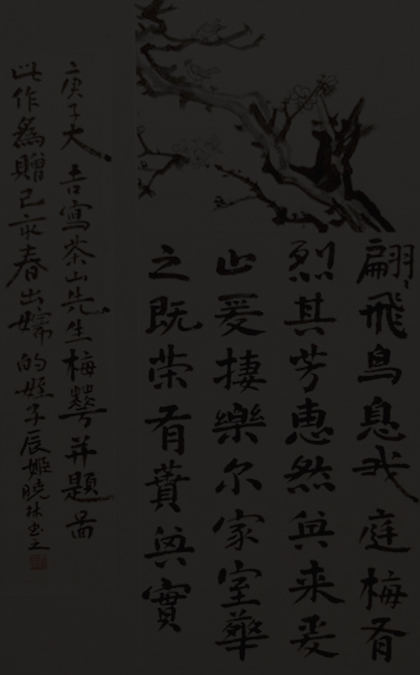 翩々飛鳥息我庭梅有
烈其芳惠然其来爰
止爰棲樂尔家室華
之既荣有蕡其實
庚子大吉寫茶山先生梅鶯并題啚
此作為贈己亥春出嫁的姪子辰姬曉林书之